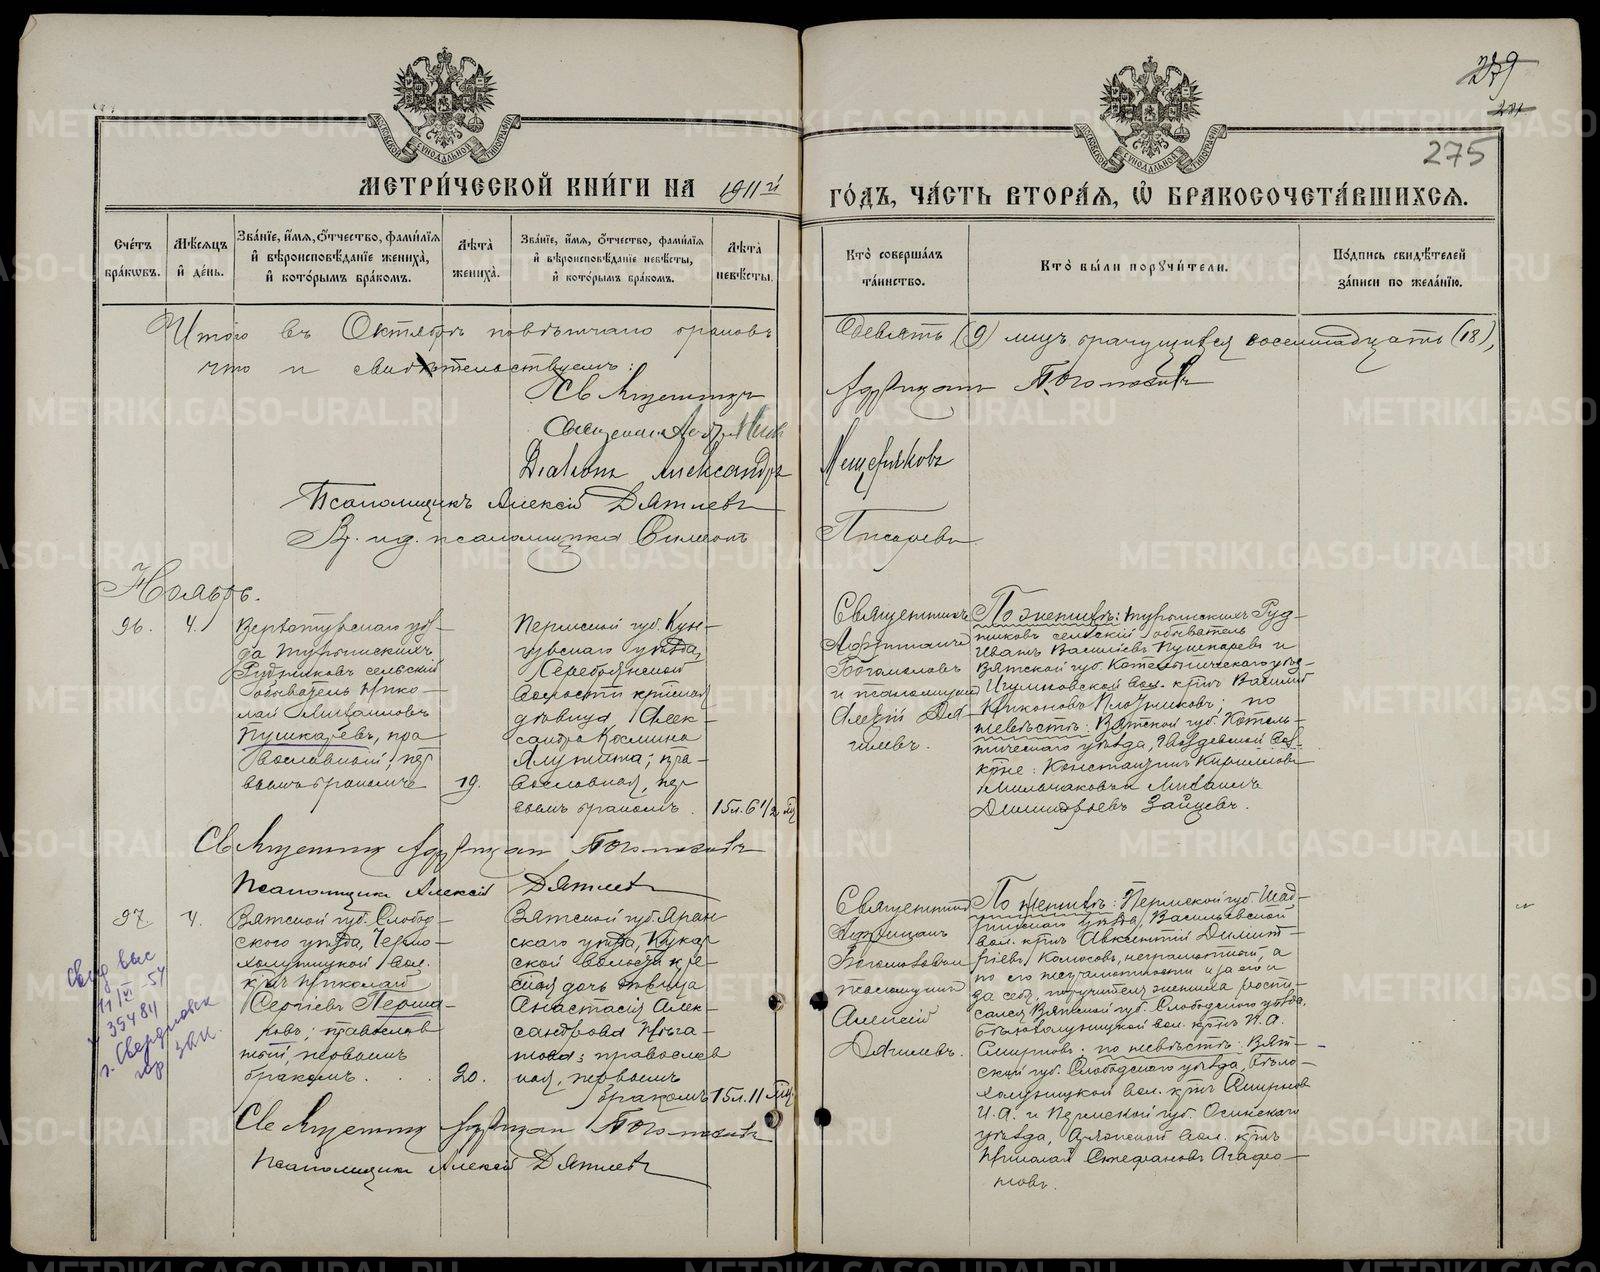 279
275
МОСКОВСКОЙ СѴНОДАЛЬНОЙ ТИПОГРАФІИ
МОСКОВСКОЙ СѴНОДАЛЬНОЙ ТИПОГРАФІИ
МЕТРИ́ЧЕСКОЙ КНИ́ГИ НА 1911 й ГО́ДЪ, ЧА́СТЬ ВТОРА́Я, Ѽ БРАКОСОЧЕТА́ВШИХСЯ.
Сче́тъ бра́кѡвъ.
Мѣ́сяцъ и҆ де́нь.
Зва́нїе, и҆́мя, ѻ҆́тчество, фами́лїя и҆ вѣроисповѣ́данїе жениха̀, и҆ кото́рымъ бра́комъ.
Лѣ́та жениха̀.
Зва́нїе, и҆́мя, ѻ҆́тчество, фами́лїя и҆ вѣроисповѣ́данїе невѣ́сты, и҆ кото́рымъ бра́комъ.
Лѣ́та невѣ́сты.
Кто̀ соверша́лъ та́инство.
Кто̀ бы́ли порꙋчи́тели.
По́дпись свидѣ́телей за́писи по жела́нїю.
Итого въ Октябрѣ повѣнчано браковъ девять (9) лицъ брачущихся восемнадцать (18),
что и свидѣтельствуемъ:
Священникъ Адріанъ Богословъ
Мещеряковъ
Діаконъ Александръ
Псаломщикъ Алексій Дятлевъ
Вр. и.д. псаломщика Симеонъ Писаревъ
Ноябрь.
96.
4.
Верхотурскаго уѣз-
да Турьинскихъ
Рудниковъ сельскій
обыватель Нико-
лай Михаиловъ
Пушкаревъ, пра-
вославный, пер
вымъ бракомъ
19.
Пермской губ. Кун-
гурскаго уѣзда,
Серебрянской
волости крѣкая
дѣвица Алек-
сандра Космина
Ялунина; пра-
вославная, пер
вымъ бракомъ.
15 л. 6 1/2 м
Священникъ
Адріанъ
Богословъ
и псаломщикъ
Алексій Дят-
левъ.
По женихѣ: Турьинскихъ Руд-
никовъ сельскій обыватель
Иванъ Васильевъ Пушкаревъ и
Вятской губ. Котельническаго уѣзд-
вол. крнъ Василій
Плотниковъ; по
невѣстѣ: Вятской губ. Котель-
ническаго уѣзда, Гвоздевской вол.
крне: Константинъ Кирилловъ
Михаилъ
Димитріевъ Зайцевъ.
Священникъ Адріанъ Богословъ
Псаломщикъ Алексій Дятлевъ
97.
4.
Вятской губ. Слобод-
ского уѣзда, Черно-
холуницкой вол.
крнъ Николай
Сергіевъ Перша-
ковъ; православ
ный, первымъ
бракомъ.
20.
Вятской губ. Яран
скаго уѣзда, Кукар
ской волости кре-
ская дочь дѣвица
Анастасія Алек-
сандрова
православ
ная, первымъ
бракомъ
15 л. 11 м.
Священникъ
Адріанъ
Богословъ и
псаломщикъ
Алексій
Дятлевъ.
По женихѣ: Пермской губ. Шад-
ринскаго уѣзда, Васильевской
вол. крнъ Авксентій Димит-
ріевъ Колосовъ, неграмотный, а
по его неграмотности и за его и
за себя, поручителя жениха роспи-
сался Вятской губ. Слободского уѣзда,
Бѣлохолуницкой вол. крнъ И. А.
Смирновъ. по невѣстѣ: Вят-
ской губ. Слободского уѣзда, Бѣло-
холуницкой вол. крнъ Смирновъ
И. А. и Пермской губ. Осинскаго
уѣзда, вол. крнъ
Николай Стефановъ Агафо-
новъ.
Священникъ Адріанъ Богословъ
Псаломщикъ Алексій Дятлевъ
Свид выс
11/VI-54
35484
г. Свердловск
гор ЗАГС
METRIKI.GASO-URAL.RU